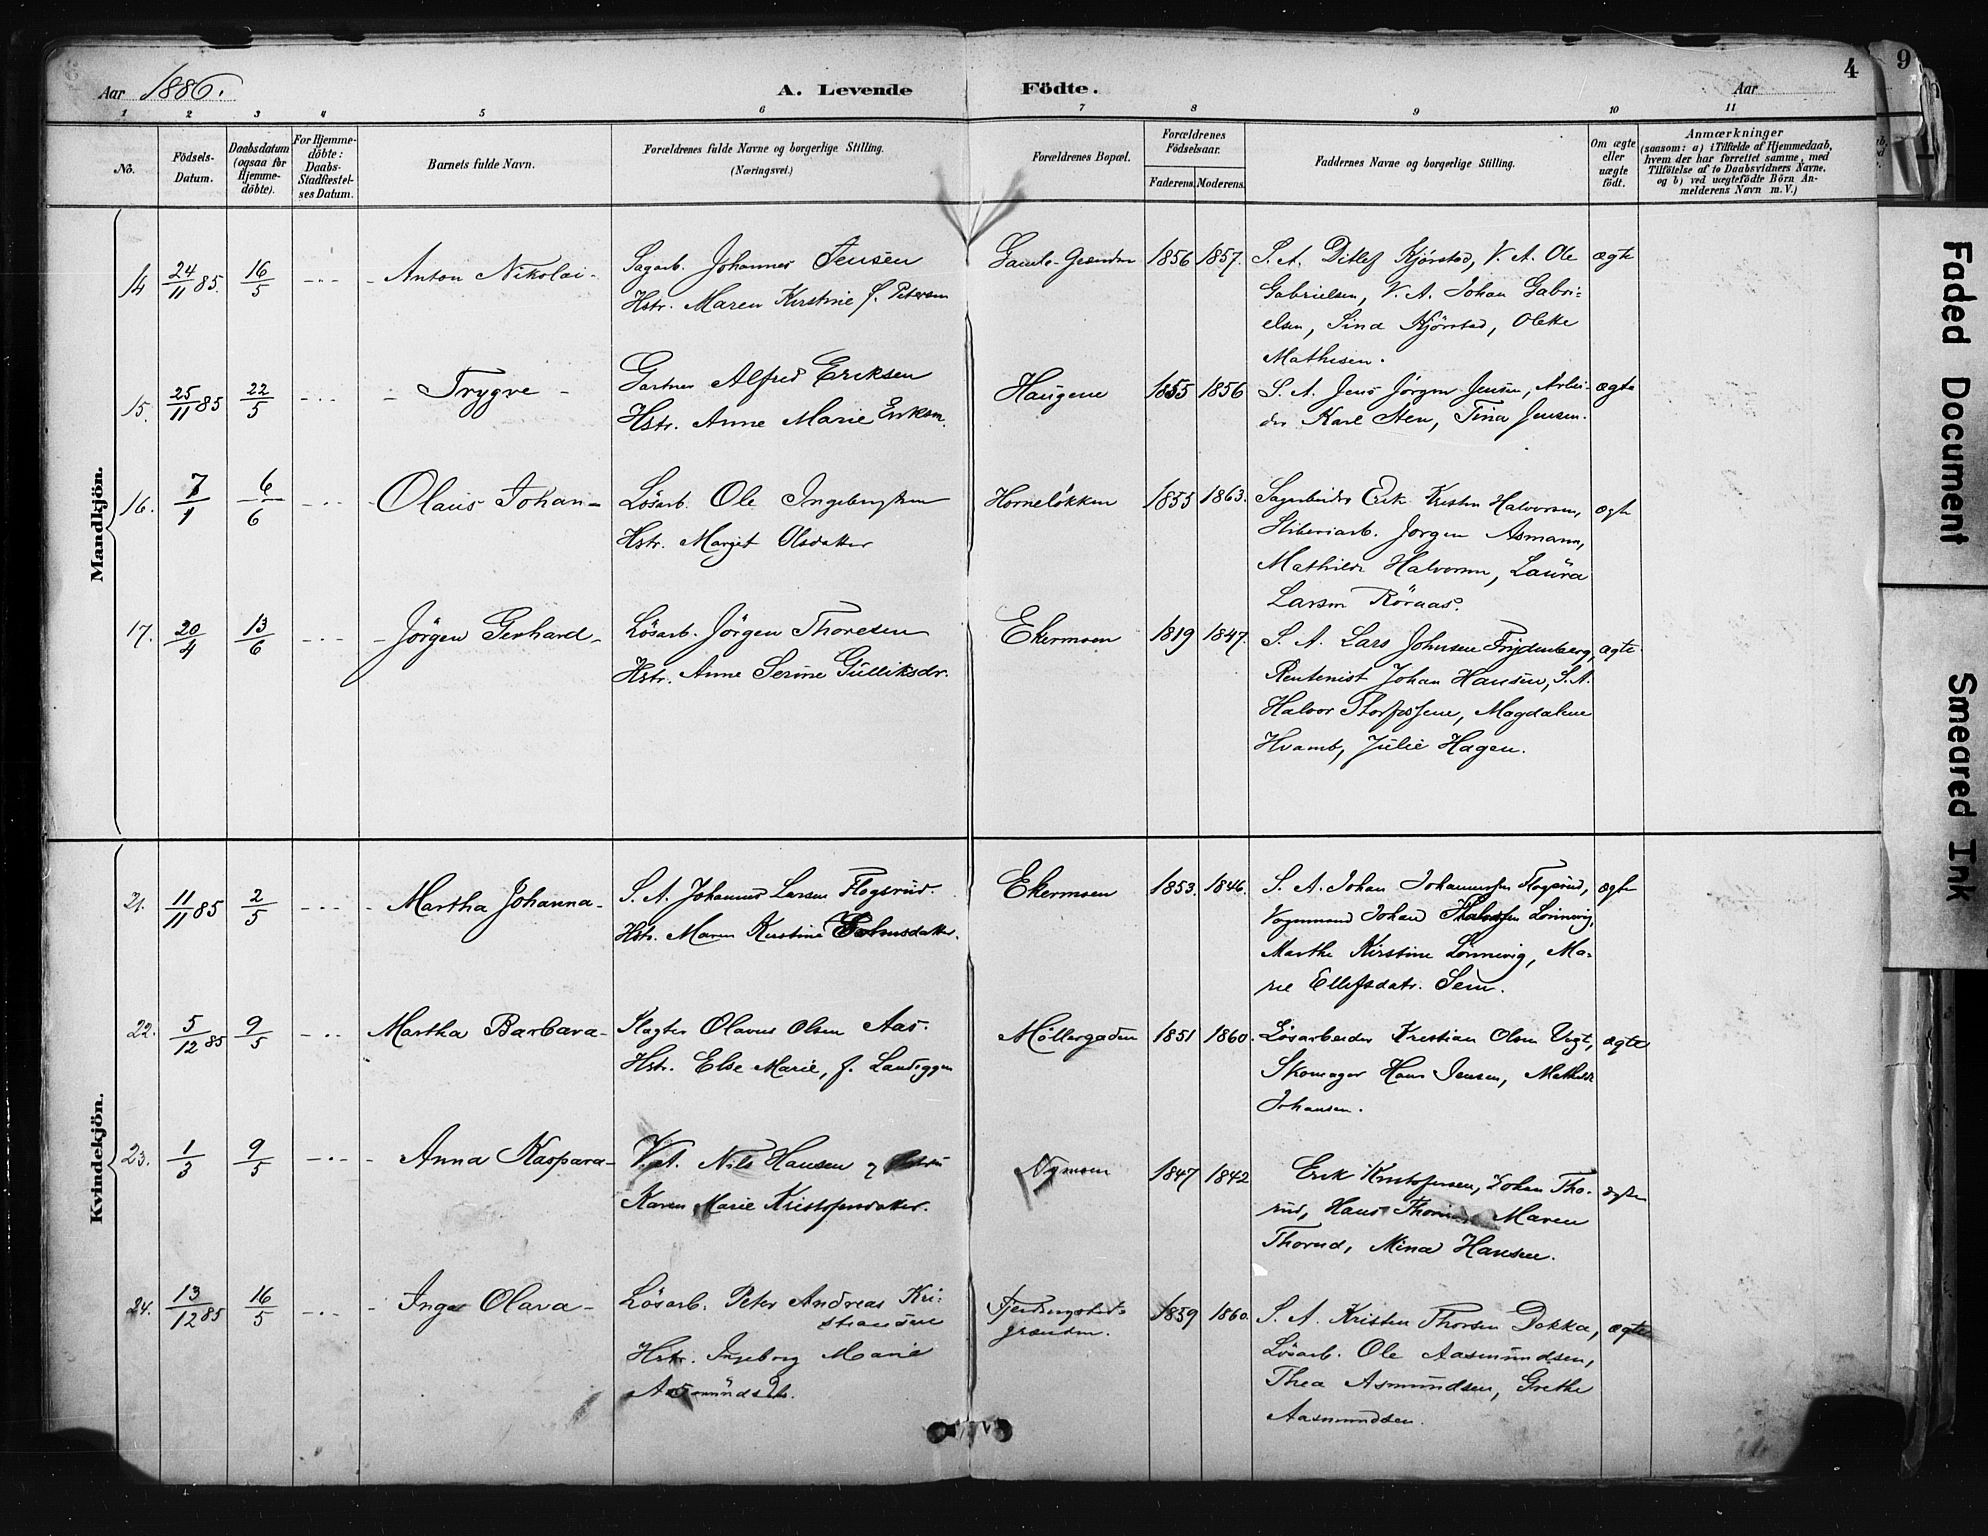 4
9
Aar 1886.
A. Levende Födte.
Aar
1 2 3 4 5 6 7 8 9 10 11
No.
Födsels-
Datum.
Daabsdatum
(ogsaa for
Hjemme-
döbte).
For Hjemme-
döbte:
Daabs-
Stadfæstel-
ses Datum.
Barnets fulde Navn.
Forældrenes fulde Navne og borgerlige Stilling.
(Næringsvei.)
Forældrenes Bopæl.
Forældrenes
Födselsaar.
Faderens. Moderens.
Faddernes Navne og borgerlige Stilling.
Om ægte
eller
uægte
födt.
Anmærkninger
(saasom: a) i Tilfælde af Hjemmedaab,
hvem der har forrettet samme, med
Tilföielse af to Daabsvidners Navne,
og b) ved uægtefödte Börn An-
melderens Navn m. V.)
Mandkjön.
14 24/11 85. 16/5 - .. - - Anton Nikolai -
Sagarb. Johannes Jensen
Hstr. Maren Kirstine f. Petersen
Gamle-Grænden 1856 1857.
S. A. Ditlef Kjörstad, V. A. Ole
Gabrielsen, V. A. Johan Gabri-
elsen, Sina Kjörstad, Olette
Mathisen.
ægte
15. 25/11 85 22/5 - .. - - Trygve -
Gartner Alfred Eriksen
Hstr. Anne Marie Eriksen.
Haugene 1855 1856
S. A. Jens Jörgen Jensen, Arbei-
der Karl Sten, Tina Jensen.
ægte
16. 7/1 6/6 - .. - - Olaus Johan -
Lösarb. Ole Ingebrigtsen
Hstr. Margit Olsdatter
Hornelökken 1855 1863.
Sagarbeider Erik Kristen Halvorsen,
Sliberiarb. Jörgen Asmann,
Mathilde Halvorsen, Laura
Larsen Röraas.
ægte
17. 20/4 13/6 - .. - - Jörgen Gerhard -
Lösarb. Jörgen Thoresen
Hstr. Anne Serine Gulliksdr.
Ekermoen 1819 1847.
S. A. Lars Johnsen Frydenberg,
Rentenist Johan Hansen, S. A.
Halvor Thorsen, Magdalene
Hvamb, Julie Hagen.
ægte
Kvindekjön.
21. 11/11 85 2/5 - .. - - Martha Johanna -
S. A. Johannes Larsen Flogsrud.
Hstr. Maren Kirstine
Ekermoen 1853. 1846.
S. A. Johan Johannessen Flogsrud,
Vognmand Johan Lönnevig,
Marthe Kirstine Lönnevig, Ma-
rie Ellefsdatr. Sem.
ægte
22. 5/12 85 9/5 - .. - Martha Barbara -
Slagter Olavus Olsen Aas.
Hstr. Else Marie, f. Landeggen
Möllergaden 1851 1860.
Lösarbeider Kristian Olsen Vegt,
Skomager Hans Jensen, Mathilde
Johansen.
ægte
23. 1/3 9/5 - .. - - Anna Kaspara -
V. A. Nils Hansen
Karen Marie Kristofersdatter.
Nymoen 1847 1842
Erik Kristofersen, Johan Tho-
rud, Hans Maren
Thorud, Mina Hansen.
ægte
24. 13/12 85 16/5 - .. - - Inga Olava -
Lösarb. Peter Andreas Kri-
stiansen
Hstr. Ingeborg Marie
Asmundsdtr.
Tjerdingstads-
grænden. 1859 1860.
S. A. Kristen Thorsen Dokka,
Lösarb. Ole Aasmundsen,
Thea Asmundsen, Grethe
Aasmundsen.
ægte
Faded Document
Smeared Ink